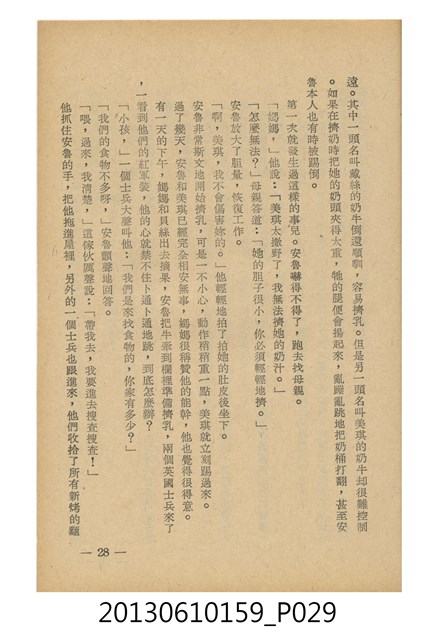 遠。其中一頭名叫戴絲的奶牛倒還順馴，容易擠乳。但是另一頭名叫美琪的奶牛却很難控制
。如果在擠奶時把她的奶頭夾得太重，牠的腿便會揚起來，亂蹦亂跳地把奶桶打翻，甚至安
魯本人也有時被踢倒。
第一次就發生過這樣的事兒。安魯嚇得不得了，跑去找母親。
「媽媽，」他說：「美琪太撒野了，我無法擠她的奶汁。」
「怎麼無法？」母親答道：「她的胆子很小，你必須輕輕地擠。」
安魯放大了胆量，恢復工作。
「啊，美琪，我不會傷害妳的。」他輕輕地拍了拍她的肚皮後坐下。
安魯非常斯文地開始擠乳，可是一不小心，動作稍稍重一點，美琪就立刻踢過來。
過了幾天，安魯和美琪已經完全相安無事，媽媽很稱贊他的能幹，他也覺得很得意。
有一天的下午，媽媽和貝絲出去摘果，安魯把牛牽到欄裡準備擠乳，兩個英國士兵來了
，一看到他們的紅軍裝，他的心就禁不住卜通卜通地跳，到底怎麼辦？
「小孩，」一個士兵大聲叫他：「我們是來找食物的，你家有多少？」
「我們的食物不多呀，」安魯顫聲地回答。
「喂，過來，我清楚，」這傢伙厲聲說：「帶我去，我要進去搜查搜查！」
他抓住安魯的手，把他拖進屋裡，另外的一個士兵也跟進來，他們收拾了所有新烤的麵
— 28 —
20130610159_P029